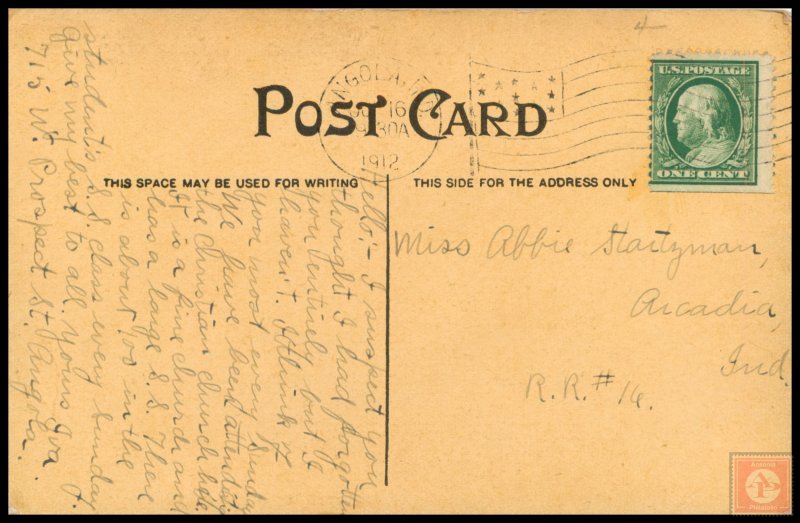 4
POST CARD
ANGOLA, IND.
16
930A
1912
U.S. POSTAGE
ONE CENT
THIS SPACE MAY BE USED FOR WRITING
THIS SIDE FOR THE ADDRESS ONLY
Hello:- I suspect you
thought I had forgotten
you entirely but I
haven't. I think of
you most every Sunday
We have been attending
the Christian church here
It is a fine church and
has a large S.S. There
is about 100 in the
student's S.S. class every Sunday
Give my best to all. Yours Iva J.
715 W. Prospect St. Angola.
Miss Abbie Startzman,
Arcadia,
Ind.
R.R. #16.
Ansonia
Philatelic